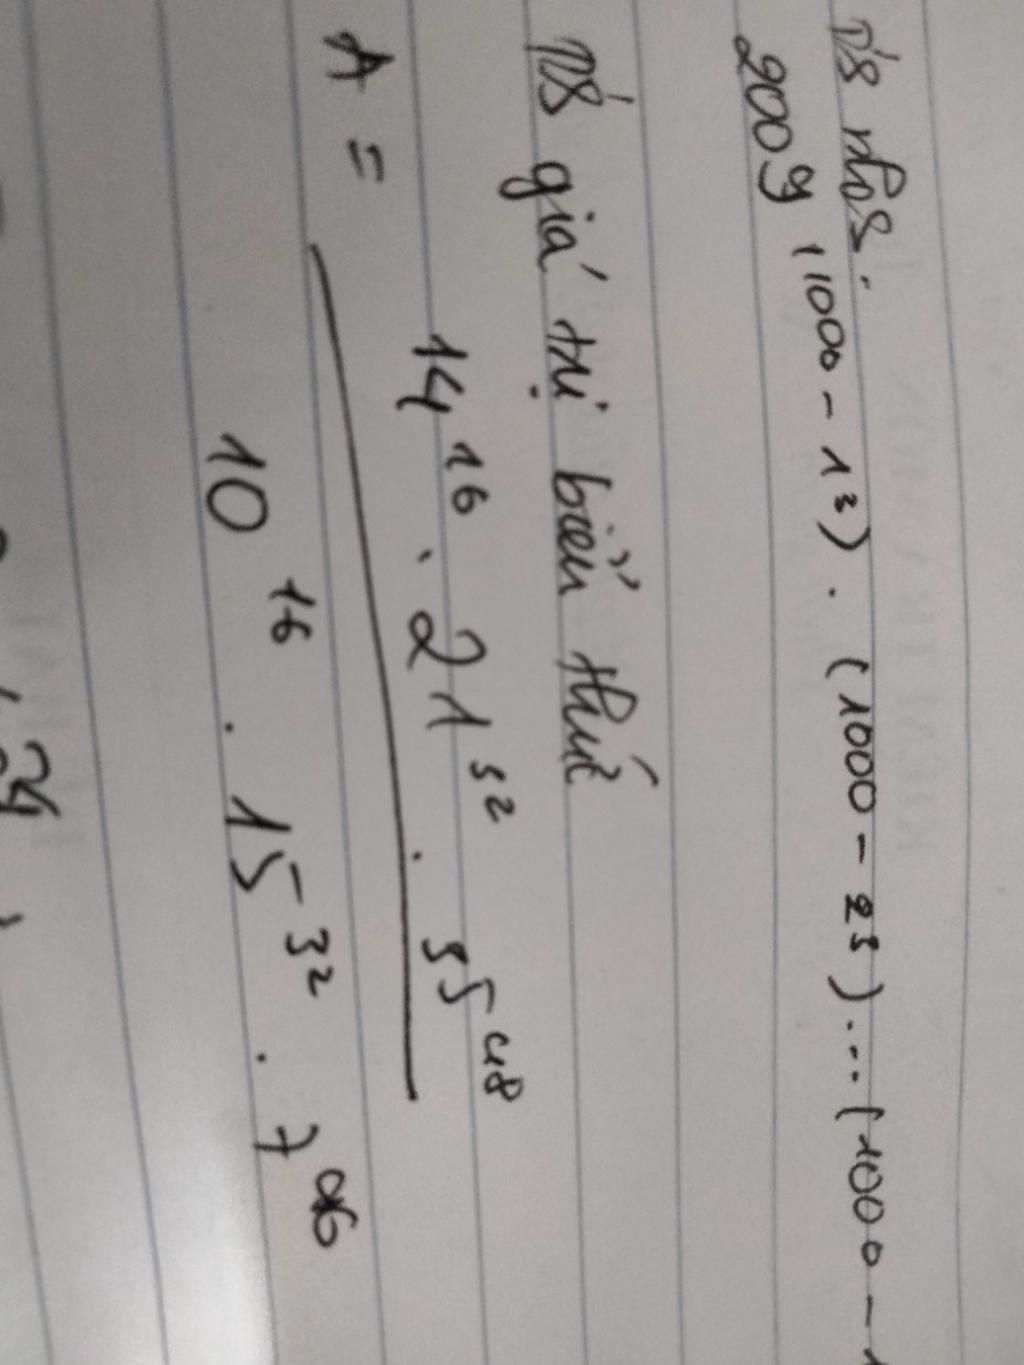 2009 (1000 - 1³) . (1000 - 2³) ... (1000 - 1
giá trị biểu thức
A = 14¹⁶ . 21³² . 35⁴⁸
10¹⁶ . 15³² . 7⁹⁶
24